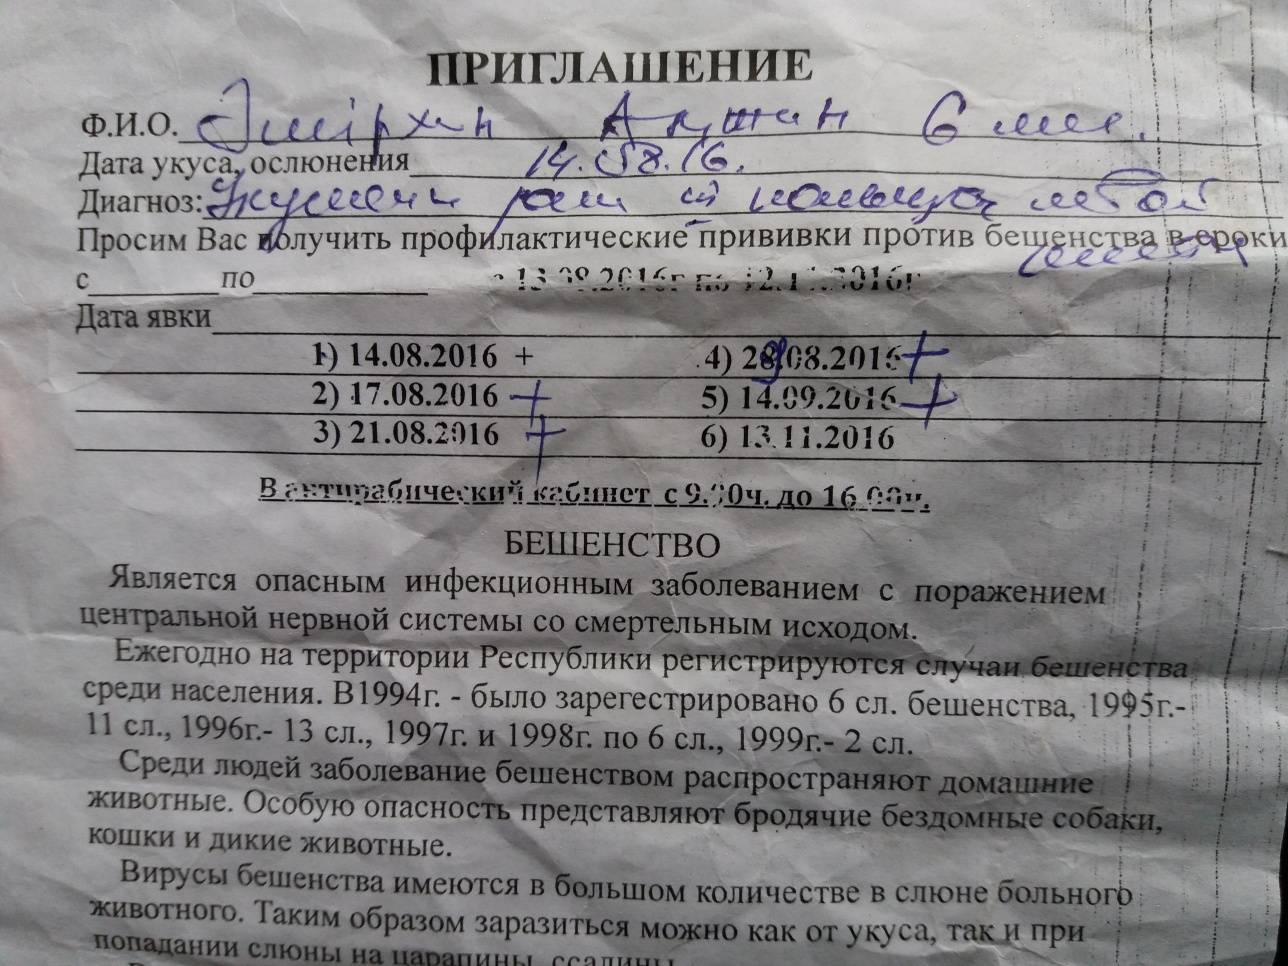 ПРИГЛАШЕНИЕ
Ф.И.О. Әмірхан 6 мес.
Дата укуса, ослюнения 14.08.16.
Диагноз: Укушен
Просим Вас получить профилактические прививки против бешенства в сроки
с по с 13.08.2016г по 12.11.2016г
Дата явки
1) 14.08.2016 + 4) 29.08.2016 +
2) 17.08.2016 + 5) 14.09.2016 +
3) 21.08.2016 + 6) 13.11.2016
В антирабический кабинет с 9.00ч. до 16.00ч.
БЕШЕНСТВО
Является опасным инфекционным заболеванием с поражением
центральной нервной системы со смертельным исходом.
Ежегодно на территории Республики регистрируются случаи бешенства
среди населения. В1994г. - было зарегестрировано 6 сл. бешенства, 1995г.-
11 сл., 1996г.- 13 сл., 1997г. и 1998г. по 6 сл., 1999г.- 2 сл.
Среди людей заболевание бешенством распространяют домашние
животные. Особую опасность представляют бродячие бездомные собаки,
кошки и дикие животные.
Вирусы бешенства имеются в большом количестве в слюне больного
животного. Таким образом заразиться можно как от укуса, так и при
попадании слюны на царапины, ссадины